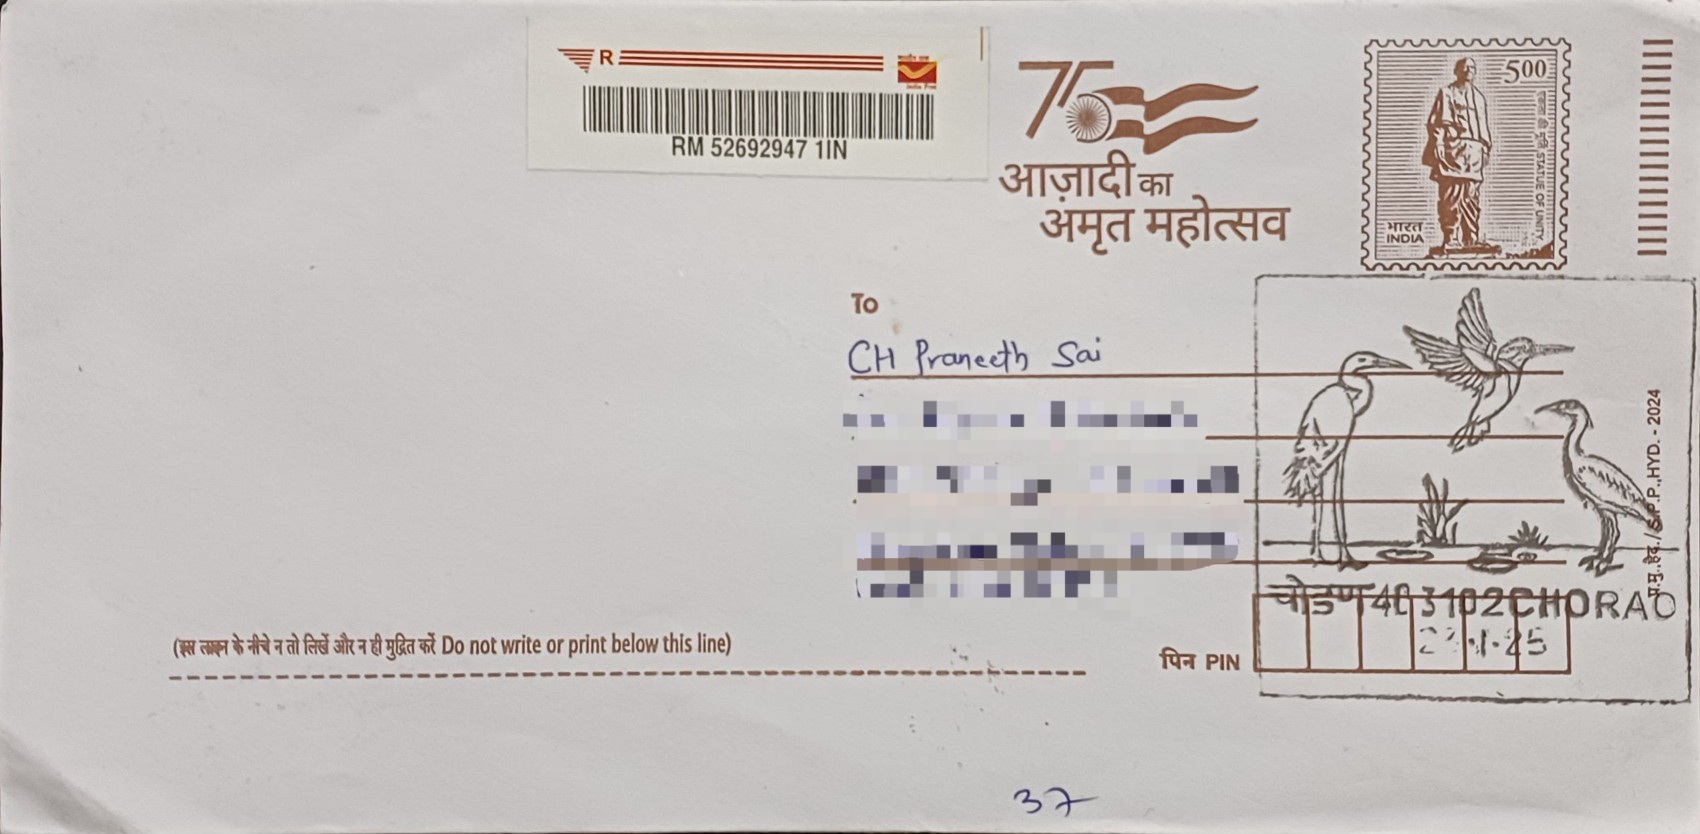 R
RM 52692947 1IN
75
आज़ादी का
अमृत महोत्सव
500
एकता की मूर्ति STATUE OF UNITY
भारत
INDIA
To
CH Praneeth Sai
प्र.मु.,हैद./S.P.P.,HYD.-2024
चोडण 403102 CHORAO
(इस लाइन के नीचे न तो लिखें और न ही मुद्रित करें Do not write or print below this line)
पिन PIN
37